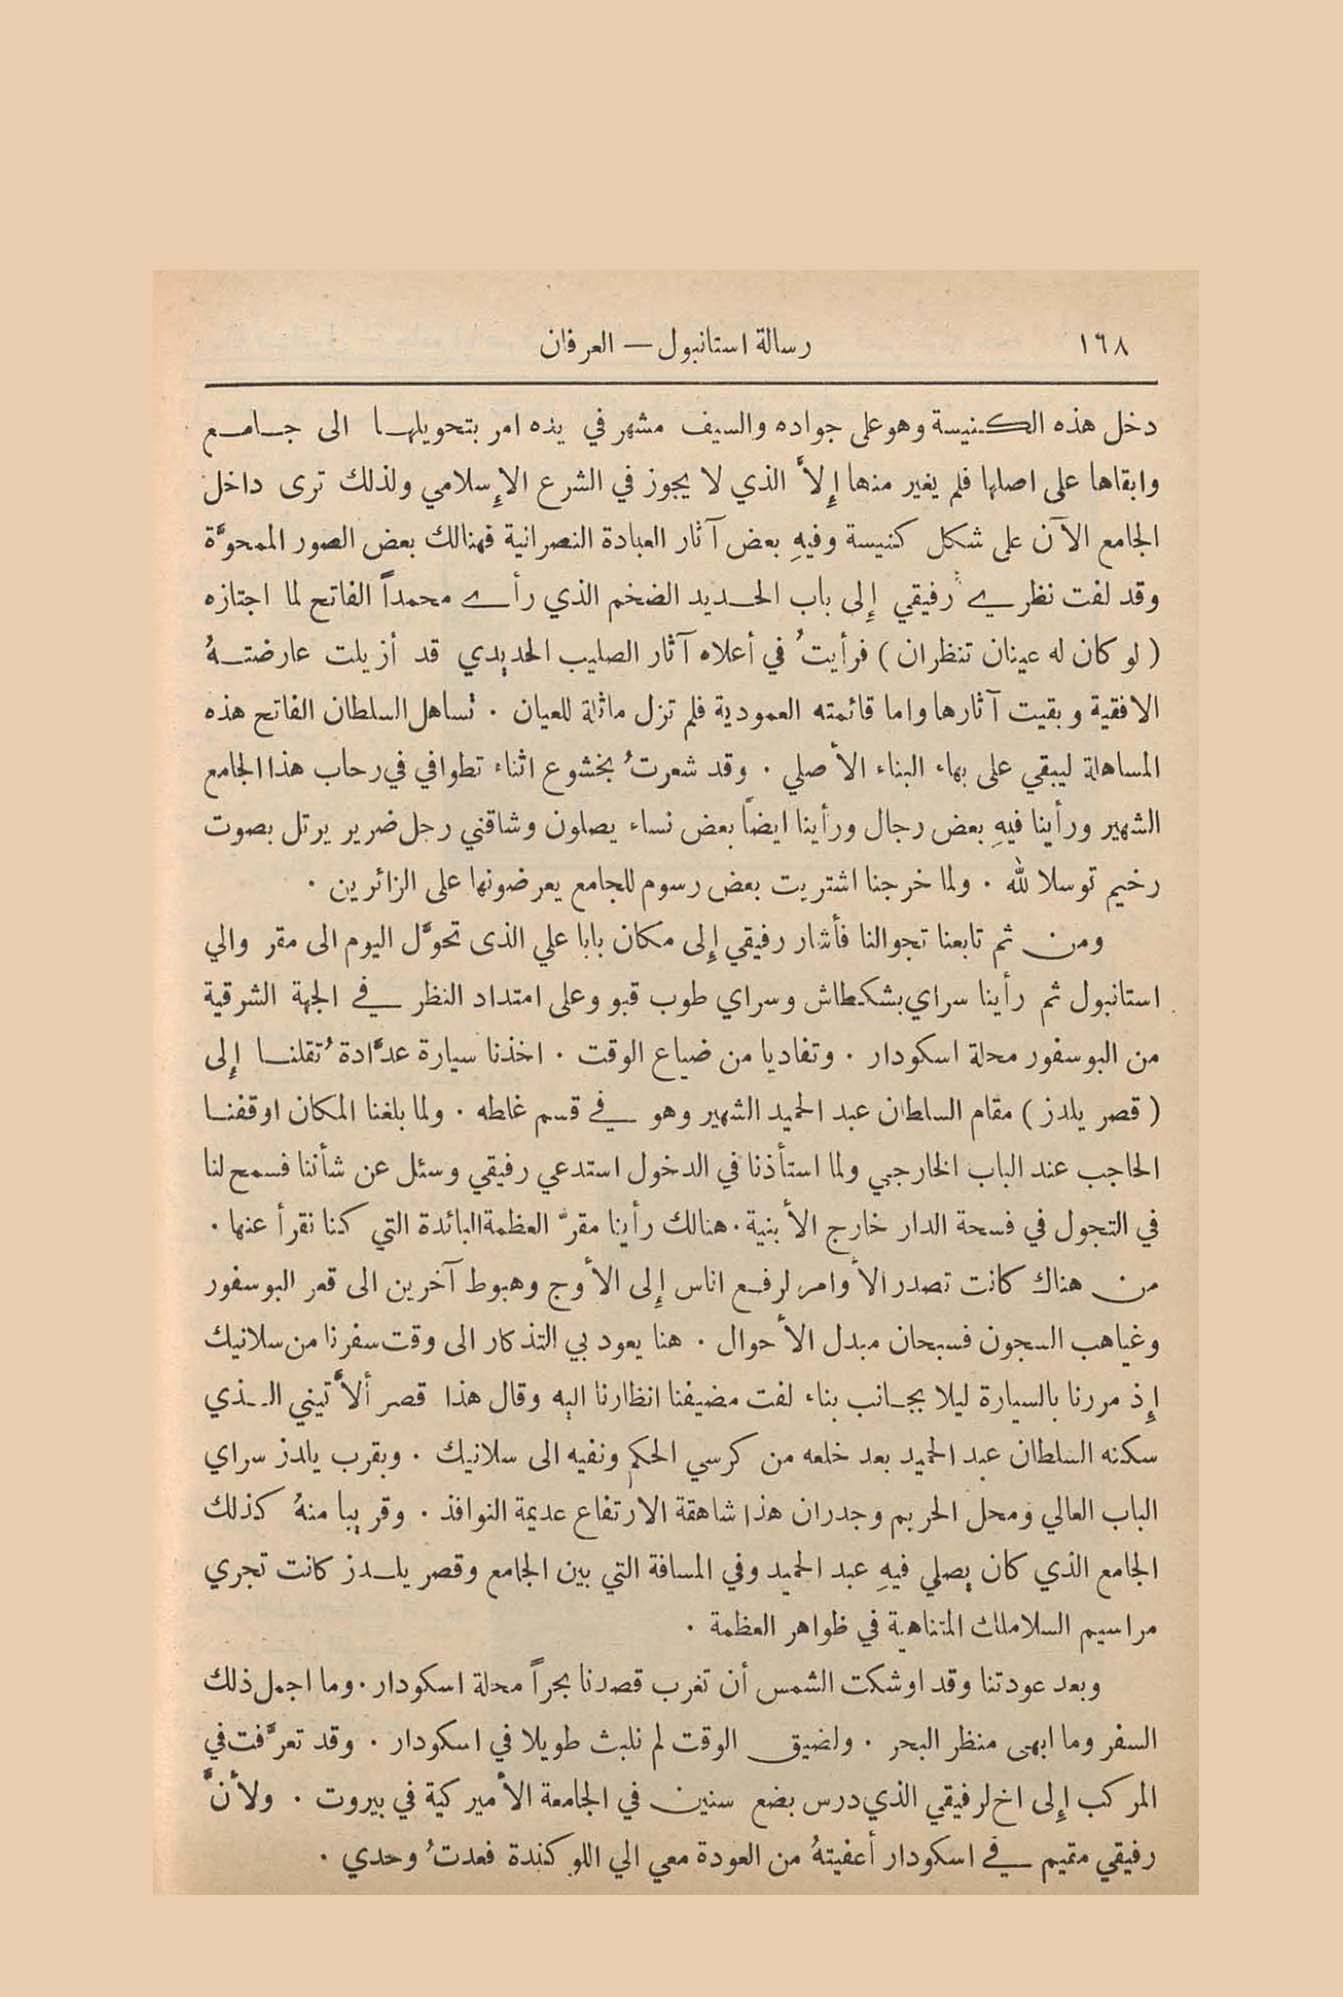 ١٦٨
رسالة استانبول — العرفان
دخل هذه الكنيسة وهو على جواده والسيف مشهر في يده امر بتحويلها الى جامع
وابقاها على اصلها فلم يغير منها إلاَّ الذي لا يجوز في الشرع الإسلامي ولذلك ترى داخل
الجامع الآن على شكل كنيسة وفيهِ بعض آثار العبادة النصرانية فهنالك بعض الصور الممحوَّة
وقد لفت نظري رفيقي إلى باب الحديد الضخم الذي رأى محمداً الفاتح لما اجتازه
( لو كان له عينان تنظران ) فرأيتُ في أعلاه آثار الصليب الحديدي قد أزيلت عارضتهُ
الافقية وبقيت آثارها واما قائمته العمودية فلم تزل ماثلة للعيان . تساهل السلطان الفاتح هذه
المساهلة ليبقي على بهاء البناء الأصلي . وقد شعرتُ بخشوع اثناء تطوافي في رحاب هذا الجامع
الشهير ورأينا فيهِ بعض رجال ورأينا ايضاً بعض نساء يصلون وشاقني رجل ضرير يرتل بصوت
رخيم توسلا لله . ولما خرجنا اشتريت بعض رسوم للجامع يعرضونها على الزائرين .
ومن ثم تابعنا تجوالنا فأشار رفيقي إلى مكان بابا علي الذى تحوَّل اليوم الى مقر والي
استانبول ثم رأينا سراي بشكطاش وسراي طوب قبو وعلى امتداد النظر في الجهة الشرقية
من البوسفور محلة اسكودار . وتفاديا من ضياع الوقت . اخذنا سيارة عدَّادة تُقلنا إلى
( قصر يلدز ) مقام السلطان عبد الحميد الشهير وهو في قسم غلطه . ولما بلغنا المكان اوقفنا
الحاجب عند الباب الخارجي ولما استأذنا في الدخول استدعي رفيقي وسئل عن شأننا فسمح لنا
في التجول في فسحة الدار خارج الأبنية . هنالك رأينا مقرَّ العظمة البائدة التي كنا نقرأ عنها .
من هناك كانت تصدر الأوامر لرفع اناس إلى الأوج وهبوط آخرين الى قعر البوسفور
وغياهب السجون فسبحان مبدل الأحوال . هنا يعود بي التذكار الى وقت سفرنا من سلانيك
إذ مررنا بالسيارة ليلا بجانب بناء لفت مضيفنا انظارنا اليه وقال هذا قصر ألاَّتيني الذي
سكنه السلطان عبد الحميد بعد خلعه من كرسي الحكم ونفيه الى سلانيك . وبقرب يلدز سراي
الباب العالي ومحل الحريم وجدران هذا شاهقة الارتفاع عديمة النوافذ . وقريبا منهُ كذلك
الجامع الذي كان يصلي فيهِ عبد الحميد وفي المسافة التي بين الجامع وقصر يلدز كانت تجري
مراسيم السلاملك المتناهية في ظواهر العظمة .
وبعد عودتنا وقد اوشكت الشمس أن تغرب قصدنا بحراً محلة اسكودار . وما اجمل ذلك
السفر وما ابهى منظر البحر . ولضيق الوقت لم نلبث طويلا في اسكودار . وقد تعرَّفت في
المركب إلى اخ لرفيقي الذي درس بضع سنين في الجامعة الأميركية في بيروت . ولأنَّ
رفيقي مقيم في اسكودار أعفيتهُ من العودة معي الي اللوكندة فعدتُ وحدي .